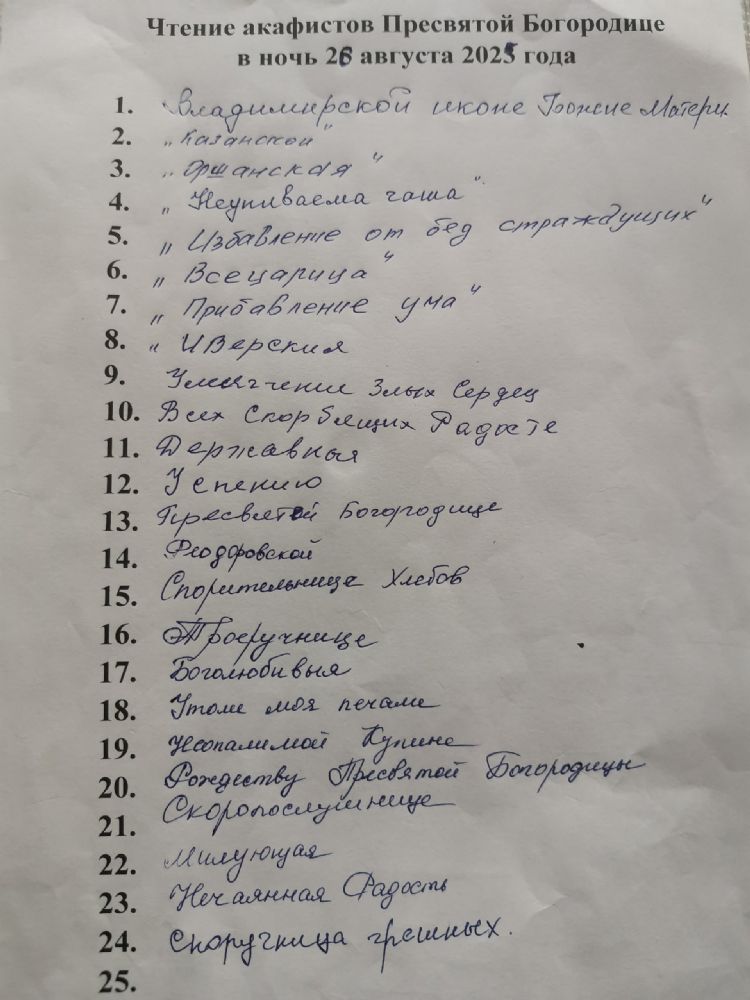 Чтение акафистов Пресвятой Богородице
в ночь 26 августа 2025 года
1. Владимирской иконе Божие Матери
2. „Казанской"
3. „Оршанская"
4. „Неупиваема чаша"
5. „Избавление от бед страждущих"
6. „Всецарица"
7. „Прибавление ума"
8. „Иверския
9. Умягчение Злых Сердец
10. Всех Скорбящих Радосте
11. Державныя
12. Успению
13. Пресвятой Богородице
14. Феодоровской
15. Спорительнице Хлебов
16. Троеручнице
17. Боголюбивыя
18. Утоли моя печали
19. Неопалимой Купине
20. Рождеству Пресвятой Богородицы
21. Скоропослушнице
22. Милующая
23. Нечаянная Радость
24. Споручница грешных.
25.